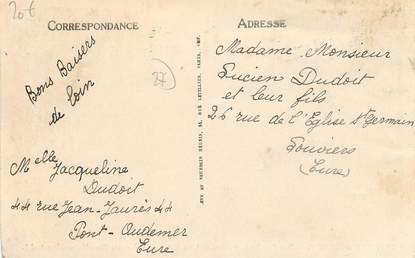 20 €
CORRESPONDANCE
ADRESSE
Bons Baisers
de loin
27
Madame Monsieur
Lucien Dudoit
et leur fils
26 rue de l'Eglise St Germain
Louviers
(Eure)
Melle Jacqueline
Dudoit
44 rue Jean-Jaurès 44
Pont-Audemer
Eure